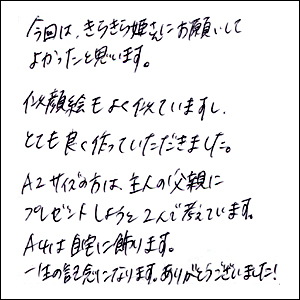 今回は、きらきら姫さんにお願いして
よかったと思います。
似顔絵もよく似ていますし、
とても良く作っていただきました。
A2サイズの方は、主人の父親に
プレゼントしようと2人で考えています。
A4は自宅に飾ります。
一生の記念になります。ありがとうございました!